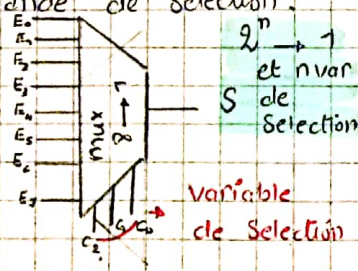 ande de selection.
E₀
E₁
E₂
E₃
E₄
E₅
E₆
E₇
mux
8 → 1
S
2ⁿ → 1
et n var
de
Selection
C₂ C₁ C₀
variable
de Selection